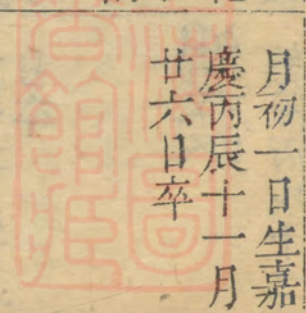 月初一日生嘉
慶丙辰十一月
廿六日卒